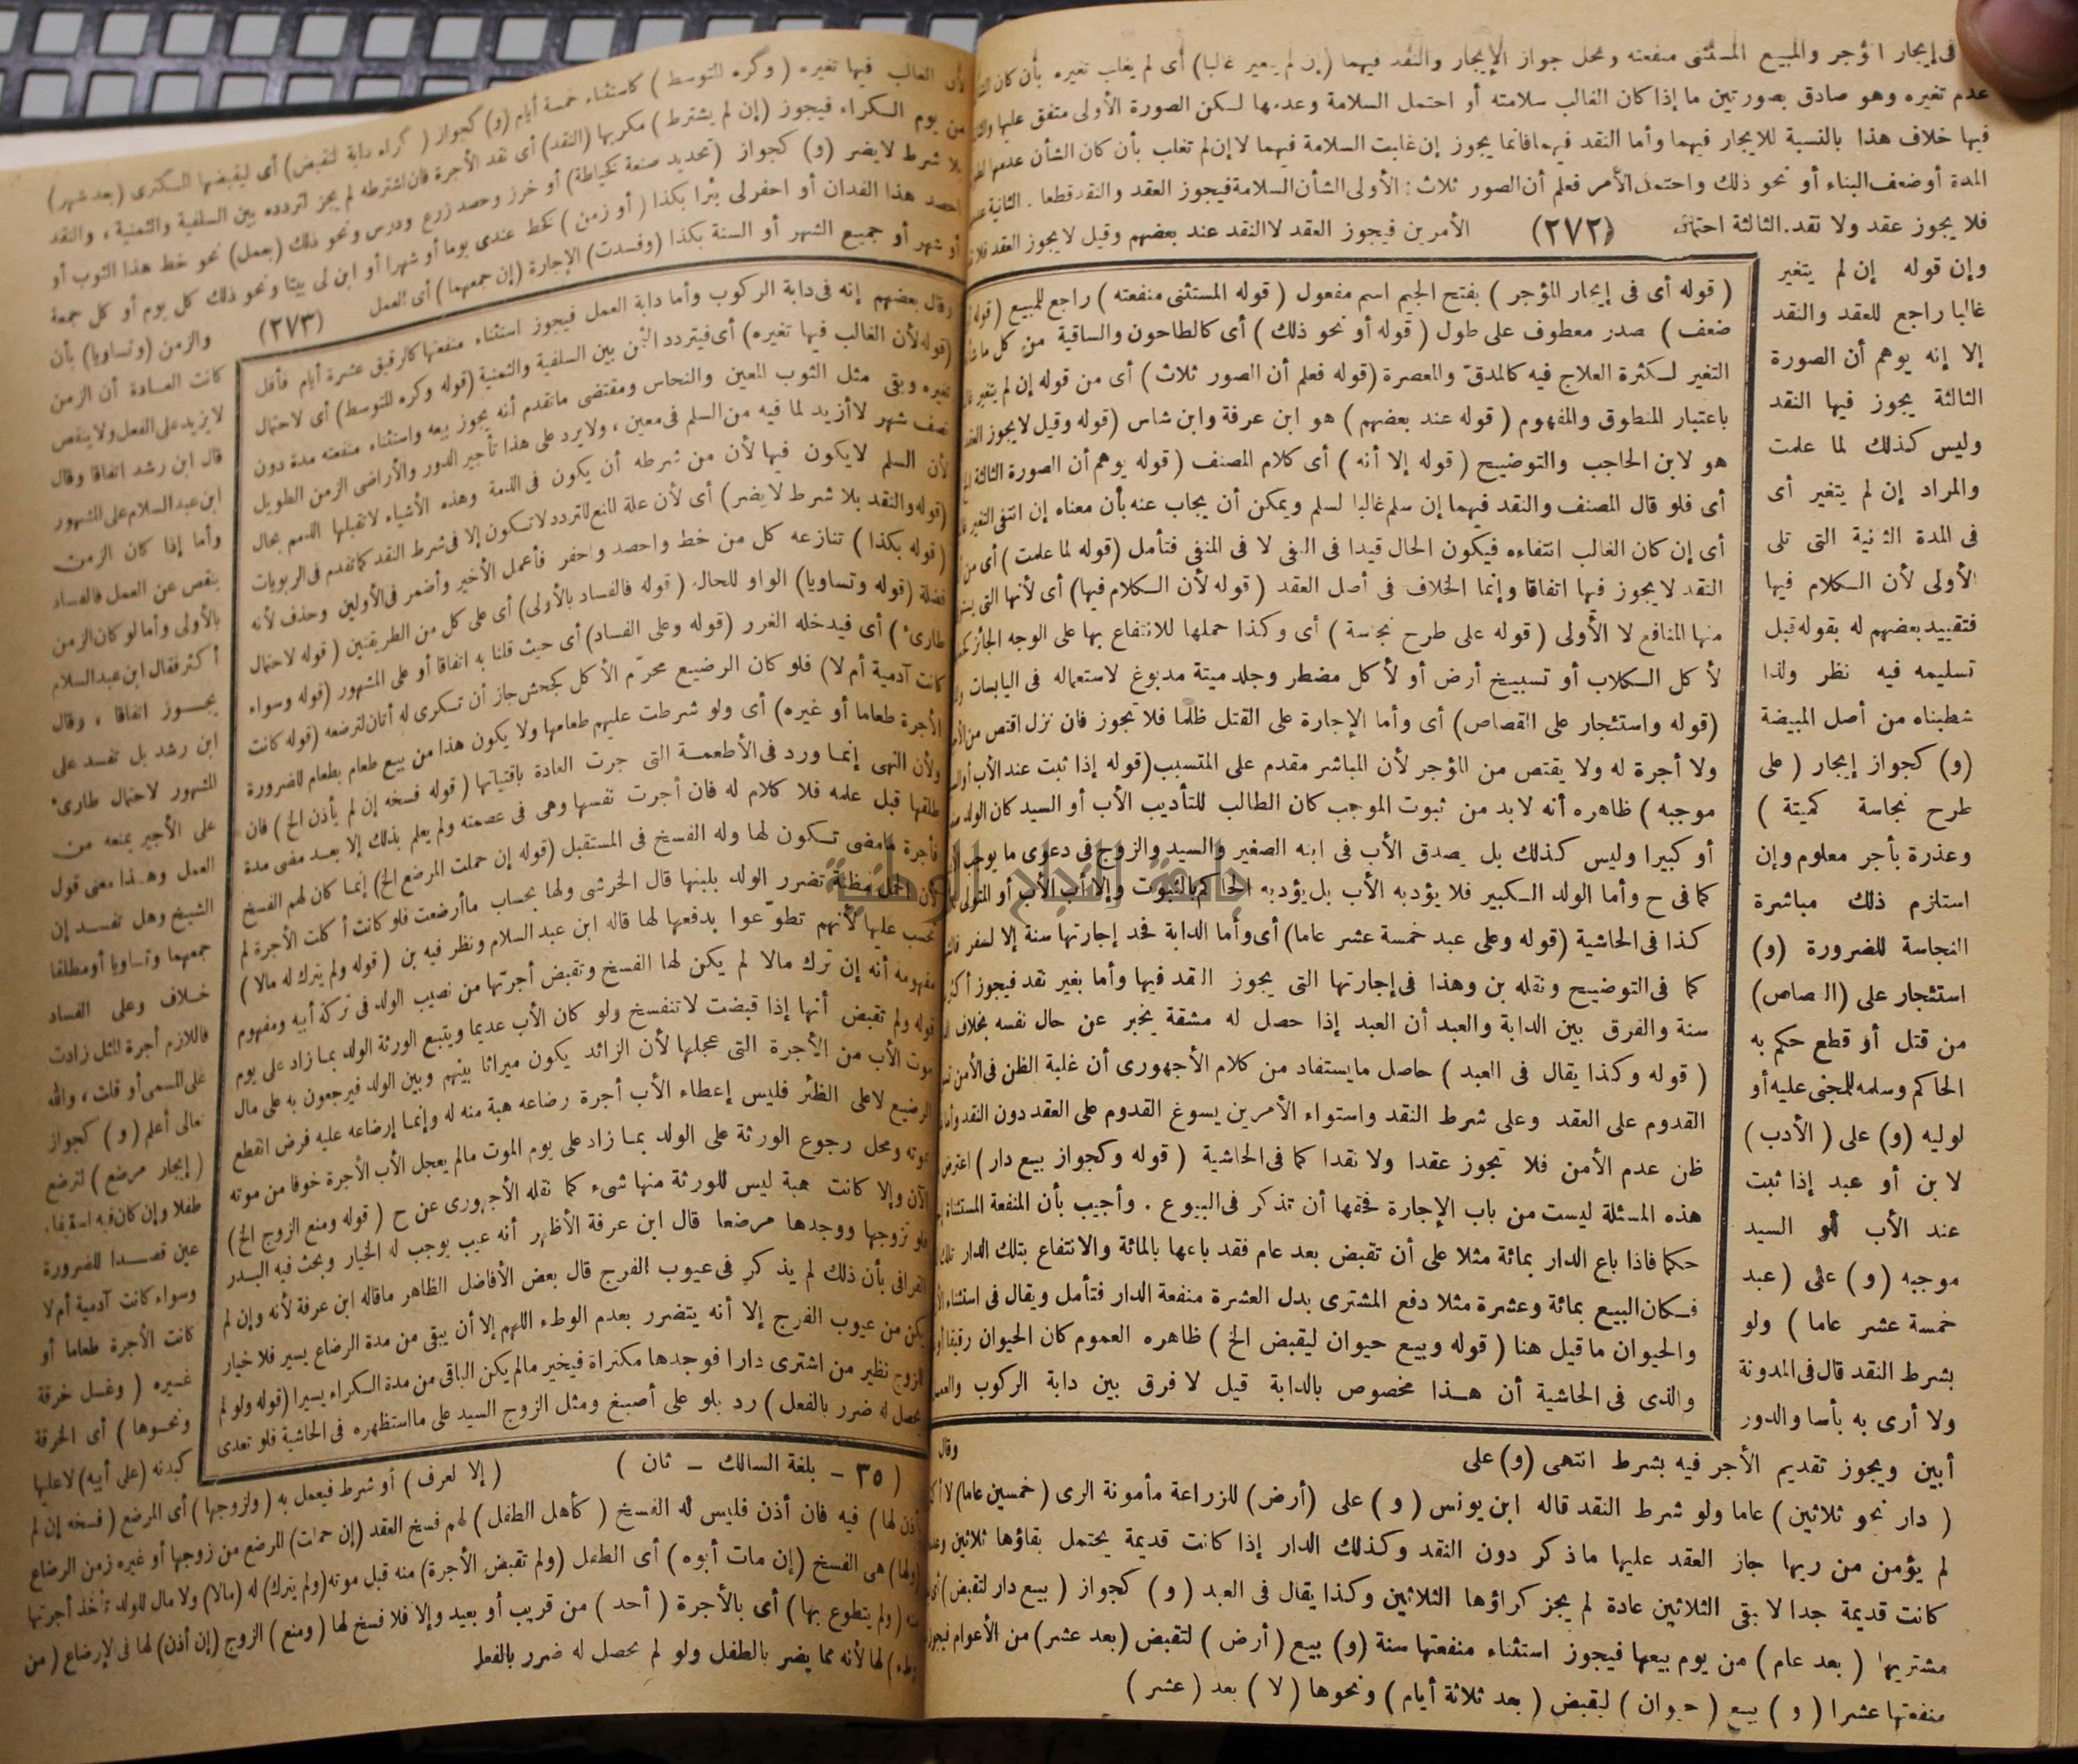 فى إيجار المؤجر والمبيع المستثنى منفعته ومحل جواز الإيجار والنقد فيهما (إن لم يتغير غالبا) أى لم يغلب تغيره بأن كان
عدم تغيره وهو صادق بصورتين ما إذا كان الغالب سلامته أو احتمل السلامة وعدمها لكن الصورة الأولى متفق عليها
فيها خلاف هذا بالنسبة للايجار فيهما وأما النقد فيهما فانما يجوز إن غلبت السلامة فيهما لا إن لم تغلب بأن كان الشأن عدمها
المدة أو ضعف البناء أو نحو ذلك واحتمل الأمر فعلم أن الصور ثلاث : الأولى الشأن السلامة فيجوز العقد والنقد قطعا . الثانية
فلا يجوز عقد ولا نقد. الثالثة احتمال (٢٧٢) الأمرين فيجوز العقد لا النقد عند بعضهم وقيل لا يجوز العقد
وإن قوله إن لم يتغير
غالبا راجع للعقد والنقد
إلا إنه يوهم أن الصورة
الثالثة يجوز فيها النقد
وليس كذلك لما علمت
والمراد إن لم يتغير أى
فى المدة الثانية التى تلى
الأولى لأن الكلام فيها
فتقييد بعضهم له بقوله قبل
تسليمه فيه نظر ولذا
شطبناه من أصل المبيضة
(و) كجواز إيجار (على
طرح نجاسة كميتة )
وعذرة بأجر معلوم وإن
استلزم ذلك مباشرة
النجاسة للضرورة (و)
استئجار على (القصاص)
من قتل أو قطع حكم به
الحاكم وسلمه للمجنى عليه أو
لوليه (و) على ( الأدب )
لابن أو عبد إذا ثبت
عند الأب أو السيد
موجبه (و) على (عبد
خمسة عشر عاما ) ولو
بشرط النقد قال فى المدونة
ولا أرى به بأسا والدور
( قوله أى فى إيجار المؤجر ) بفتح الجيم اسم مفعول ( قوله المستثنى منفعته ) راجع للمبيع (قوله
ضعف ) مصدر معطوف على طول ( قوله أو نحو ذلك ) أى كالطاحون والساقية من كل
التغير لكثرة العلاج فيه كالمدق والمعصرة (قوله فعلم أن الصور ثلاث ) أى من قوله إن لم يتغير
باعتبار المنطوق والمفهوم ( قوله عند بعضهم ) هو ابن عرفة وابن شاس (قوله وقيل لا يجوز
هو لابن الحاجب والتوضيح ( قوله إلا أنه ) أى كلام المصنف ( قوله يوهم أن الصورة الثالثة
أى فلو قال المصنف والنقد فيهما إن سلم غالبا لسلم ويمكن أن يجاب عنه بأن معناه إن انتفى التغير
أى إن كان الغالب انتفاءه فيكون الحال قيدا فى النفى لا فى المنفى فتأمل (قوله لما علمت ) أى من
النقد لا يجوز فيها اتفاقا وإنما الخلاف فى أصل العقد ( قوله لأن الكلام فيها) أى لأنها التى
منها المنافع لا الأولى ( قوله على طرح نجاسة ) أى وكذا حملها للانتفاع بها على الوجه الجائز
لأكل الكلاب أو تسبيخ أرض أو لأكل مضطر وجلد ميتة مدبوغ لاستعماله فى اليابسات
(قوله واستئجار على القصاص) أى وأما الإجارة على القتل ظلما فلا تجوز فان نزل اقتص من
ولا أجرة له ولا يقتص من المؤجر لأن المباشر مقدم على المتسبب (قوله إذا ثبت عند الأب
موجبه ) ظاهره أنه لابد من ثبوت الموجب كان الطالب للتأديب الأب أو السيد كان الولد
أو كبيرا وليس كذلك بل يصدق الأب فى ابنه الصغير والسيد والزوج فى دعوى ما يوجب
كما فى ح وأما الولد الكبير فلا يؤدبه الأب بل يؤدبه الحاكم بالثبوت وإلا أدب الأب أو المتولى
كذا فى الحاشية (قوله وعلى عبد خمسة عشر عاما) أى وأما الدابة فحد إجارتها سنة إلا لسفر
كما فى التوضيح ونقله بن وهذا فى إجارتها التى يجوز النقد فيها وأما بغير نقد فيجوز
سنة والفرق بين الدابة والعبد أن العبد إذا حصل له مشقة يخبر عن حال نفسه بخلاف
( قوله وكذا يقال فى العبد ) حاصل ما يستفاد من كلام الأجهورى أن غلبة الظن فى الأمن
القدوم على العقد وعلى شرط النقد واستواء الأمرين يسوغ القدوم على العقد دون النقد
ظن عدم الأمن فلا تجوز عقدا ولا نقدا كما فى الحاشية ( قوله وكجواز بيع دار ) اعترض
هذه المسئلة ليست من باب الإجارة فحقها أن تذكر فى البيوع . وأجيب بأن المنفعة المستثناة
حكما فاذا باع الدار بمائة مثلا على أن تقبض بعد عام فقد باعها بالمائة والانتفاع بتلك الدار
فكان البيع بمائة وعشرة مثلا دفع المشترى بدل العشرة منفعة الدار فتأمل ويقال فى استثناء
والحيوان ما قيل هنا ( قوله وبيع حيوان ليقبض الخ ) ظاهره العموم كان الحيوان رقيقا
والذى فى الحاشية أن هذا مخصوص بالدابة قيل لا فرق بين دابة الركوب
وقال
أبين ويجوز تقديم الأجر فيه بشرط انتهى (و) على
( دار نحو ثلاثين ) عاما ولو شرط النقد قاله ابن يونس ( و ) على (أرض) للزراعة مأمونة الرى ( خمسين عاما )
لم يؤمن من ريها جاز العقد عليها ما ذكر دون النقد وكذلك الدار إذا كانت قديمة يحتمل بقاؤها ثلاثين
كانت قديمة جدا لا تبقى الثلاثين عادة لم يجز كراؤها الثلاثين وكذا يقال فى العبد ( و ) كجواز ( بيع دار لتقبض )
مشتريها ( بعد عام ) من يوم بيعها فيجوز استثناء منفعتها سنة (و) بيع ( أرض ) لتقبض (بعد عشر) من الأعوام
منفعتها عشرا ( و ) بيع ( حيوان ) ليقبض ( بعد ثلاثة أيام ) ونحوها ( لا ) بعد ( عشر )
لأن الغالب فيها تغيره ( وكره للتوسط ) كاستثناء خمسة أيام (و) كجواز ( كراء دابة لتقبض) أى ليقبضها المكترى (بعد شهر)
من يوم الكراء فيجوز (إن لم يشترط ) مكريها (النقد) أى نقد الأجرة فان اشترطه لم يجز لتردده بين السلفية والثمنية ، والنقد
بلا شرط لا يضر (و) كجواز (تحديد صنعة كخياطة) أو خرز وحصد زرع ودرس ونحو ذلك (بعمل) نحو خط هذا الثوب أو
احصد هذا الفدان أو احفر لى بئرا بكذا ( أو زمن ) كخط عندى يوما أو شهرا أو ابن لى بيتا ونحو ذلك كل يوم أو كل جمعة
أو شهر أو جميع الشهر أو السنة بكذا (وفسدت) الإجارة (إن جمعهما) أى العمل (٢٧٣) والزمن (وتساويا) بأن
كانت العادة أن الزمن
لا يزيد على الفعل ولا ينقص
قال ابن رشد اتفاقا وقال
ابن عبد السلام على المشهور
وأما إذا كان الزمن
ينقص عن العمل فالفساد
بالأولى وأما لو كان الزمن
أكثر فقال ابن عبد السلام
يجوز اتفاقا ، وقال
ابن رشد بل تفسد على
المشهور لاحتمال طارئ
على الأجير يمنعه من
العمل وهذا معنى قول
الشيخ وهل تفسد إن
جمعهما وتساويا أو مطلقا
خلاف وعلى الفساد
فاللازم أجرة المثل زادت
على المسمى أو قلت ، والله
تعالى أعلم ( و ) كجواز
( إيجار مرضع ) لترضع
طفلا وإن كان فيه استيفاء
عين قصدا للضرورة
وسواء كانت آدمية أم لا
كانت الأجرة طعاما أو
غيره ( وغسل خرقة
ونحوها ) أى الخرقة
كبدنه (على أبيه) لا عليها
وقال بعضهم إنه فى دابة الركوب وأما دابة العمل فيجوز استثناء منفعتها كالرقيق عشرة أيام فأقل
(قوله لأن الغالب فيها تغيره) أى فيتردد الثمن بين السلفية والثمنية (قوله وكره للتوسط) أى لاحتمال
تغيره وبقى مثل الثوب المعين والنحاس ومقتضى ما تقدم أنه يجوز بيعه واستثناء منفعته مدة دون
نصف شهر لا أزيد لما فيه من السلم فى معين ، ولا يرد على هذا تأجير الدور والأراضى الزمن الطويل
لأن السلم لا يكون فيها لأن من شرطه أن يكون فى الذمة وهذه الأشياء لا تقبلها الذمم بحال
(قوله والنقد بلا شرط لا يضر) أى لأن علة المنع للتردد لا تكون إلا فى شرط النقد كما تقدم فى الربويات
(قوله بكذا ) تنازعه كل من خط واحصد واحفر فأعمل الأخير وأضمر فى الأولين وحذف لأنه
فضلة (قوله وتساويا) الواو للحال ( قوله فالفساد بالأولى) أى على كل من الطريقتين (قوله لاحتمال
طارئ ) أى فيدخله الغرر (قوله وعلى الفساد) أى حيث قلنا به اتفاقا أو على المشهور (قوله وسواء
كانت آدمية أم لا) فلو كان الرضيع محرم الأكل كجحش جاز أن تكرى له أتان لترضعه (قوله كانت
الأجرة طعاما أو غيره) أى ولو شرطت عليهم طعامها ولا يكون هذا من بيع طعام بطعام للضرورة
ولأن النهى إنما ورد فى الأطعمة التى جرت العادة باقتياتها ( قوله فسخه إن لم يأذن الخ ) فان
طلقها قبل علمه فلا كلام له فان أجرت نفسها وهى فى عصمته ولم يعلم بذلك إلا بعد مضى مدة
فأجرة ما مضى تكون لها وله الفسخ فى المستقبل (قوله إن حملت المرضع الخ) إنما كان لهم الفسخ
لأن الحمل مظنة تضرر الولد بلبنها قال الخرشى ولها بحساب ما أرضعت فلو كانت أكلت الأجرة لم
تحسب عليها لأنهم تطوعوا بدفعها لها قاله ابن عبد السلام ونظر فيه بن ( قوله ولم يترك له مالا )
مفهومه أنه إن ترك مالا لم يكن لها الفسخ وتقبض أجرتها من نصيب الولد فى تركة أبيه ومفهوم
قوله ولم تقبض أنها إذا قبضت لا تنفسخ ولو كان الأب عديما ويتبع الورثة الولد بما زاد على يوم
موت الأب من الأجرة التى عجلها لأن الزائد يكون ميراثا بينهم وبين الولد فيرجعون به على مال
الرضيع لا على الظئر فليس إعطاء الأب أجرة رضاعه هبة منه له وإنما إرضاعه عليه فرض انقطع
بموته ومحل رجوع الورثة على الولد بما زاد على يوم الموت ما لم يعجل الأب الأجرة خوفا من موته
الآن وإلا كانت هبة ليس للورثة منها شىء كما نقله الأجهورى عن ح ( قوله ومنع الزوج الخ)
فلو تزوجها ووجدها مرضعا قال ابن عرفة الأظهر أنه عيب يوجب له الخيار وبحث فيه البدر
القرافى بأن ذلك لم يذكر فى عيوب الفرج قال بعض الأفاضل الظاهر ما قاله ابن عرفة لأنه وإن لم
يكن من عيوب الفرج إلا أنه يتضرر بعدم الوطء اللهم إلا أن يبقى من مدة الرضاع يسير فلا خيار
للزوج نظير من اشترى دارا فوجدها مكتراة فيخير ما لم يكن الباقى من مدة الكراء يسيرا (قوله ولو لم
يحصل له ضرر بالفعل ) رد بلو على أصبغ ومثل الزوج السيد على ما استظهره فى الحاشية فلو تعدى
( ٣٥ - بلغة السالك - ثان )
( إلا لعرف ) أو شرط فيعمل به ( ولزوجها ) أى المرضع ( فسخه إن لم
يأذن لها) فيه فان أذن فليس له الفسخ ( كأهل الطفل ) لهم فسخ العقد (إن حملت) المرضع من زوجها أو غيره زمن الرضاع
(ولها) هى الفسخ (إن مات أبوه ) أى الطفل (ولم تقبض الأجرة) منه قبل موته (ولم يترك) له (مالا) ولا مال للولد تأخذ أجرتها
منه (ولم يتطوع بها) أى بالأجرة ( أحد ) من قريب أو بعيد وإلا فلا فسخ لها ( ومنع ) الزوج (إن أذن) لها فى الإرضاع (من
وطء) لها لأنه مما يضر بالطفل ولو لم يحصل له ضرر بالفعل
جامعة النجاح الوطنية